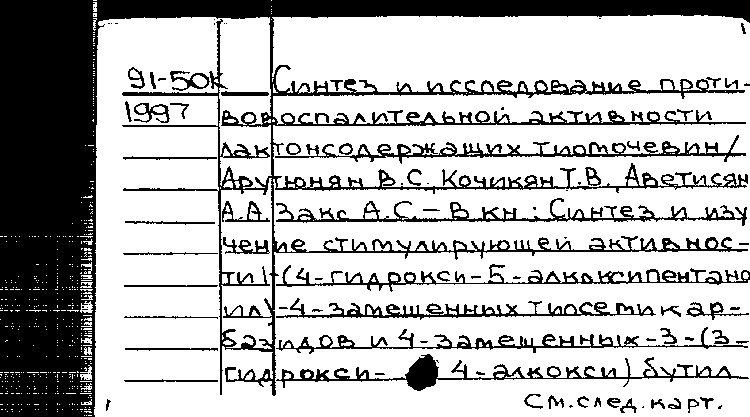 91-50К Синтез и исследование проти-
1997 вовоспалительной активности
лактонсодержащих тиомочевин/
Арутюнян В.С., Кочикян Т.В., Аветисян
А.А. Закс А.С. – В кн: Синтез и изу
чение стимулирующей активнос-
ти 1-(4-гидрокси-5-алкоксипентано
ил)-4-замещенных тиосемикар-
базидов и 4-замещенных-3-(3-
гидрокси- 4-алкокси) бутил
См. след. карт.